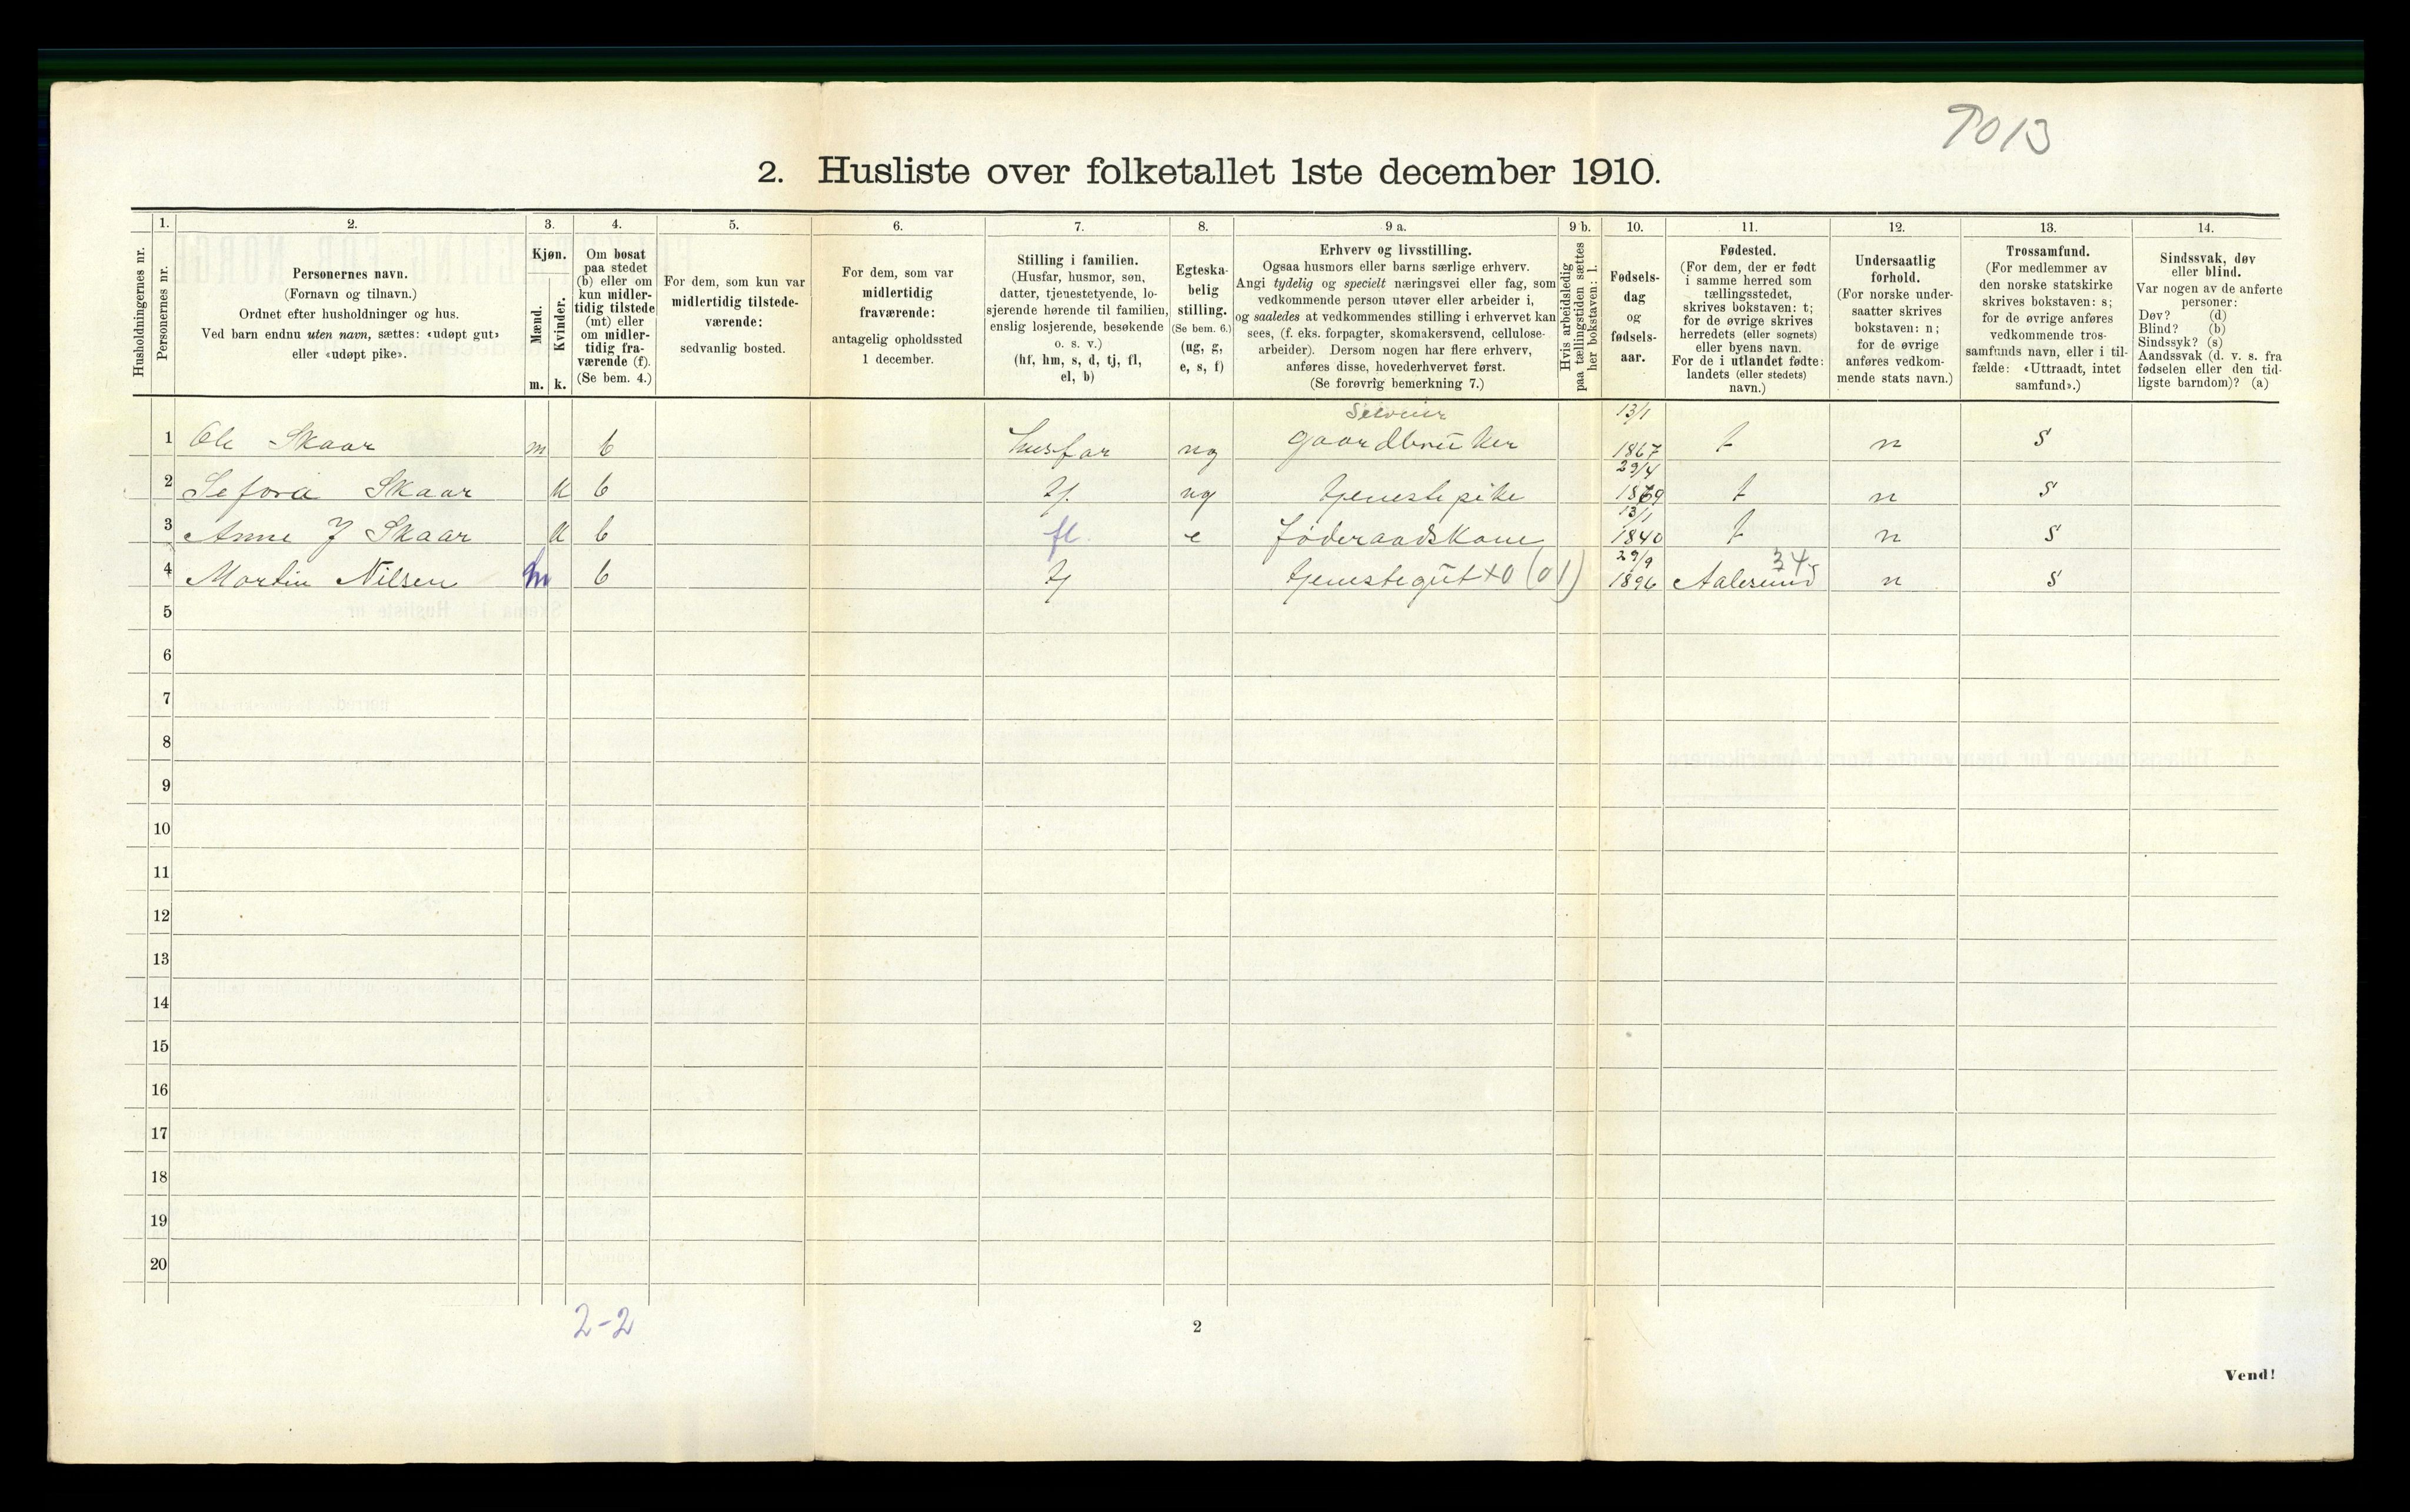 2. Husliste over folketallet 1ste december 1910.
1. 2. 3. 4. 5. 6. 7. 8. 9 a. 9 b. 10. 11. 12. 13. 14.
Husholdningernes nr.
Personernes nr.
Personernes navn.
(Fornavn og tilnavn.)
Ordnet efter husholdninger og hus.
Ved barn endnu uten navn, sættes: «udøpt gut»
eller «udøpt pike».
Kjøn.
Mænd.
Kvinder.
m. k.
Om bosat
paa stedet
(b) eller om
kun midler-
tidig tilstede
(mt) eller
om midler-
tidig fra-
værende (f).
(Se bem. 4.)
For dem, som kun var
midlertidig tilstede-
værende:
sedvanlig bosted.
For dem, som var
midlertidig
fraværende:
antagelig opholdssted
1 december.
Stilling i familien.
(Husfar, husmor, søn,
datter, tjenestetyende, lo-
sjerende hørende til familien,
enslig losjerende, besøkende
o. s. v.)
(hf, hm, s, d, tj, fl,
el, b)
Egteska-
belig
stilling.
(Se bem. 6.)
(ug, g,
e, s, f)
Erhverv og livsstilling.
Ogsaa husmors eller barns særlige erhverv.
Angi tydelig og specielt næringsvei eller fag, som
vedkommende person utøver eller arbeider i,
og saaledes at vedkommendes stilling i erhvervet kan
sees, (f. eks. forpagter, skomakersvend, cellulose-
arbeider). Dersom nogen har flere erhverv,
anføres disse, hovederhvervet først.
(Se forøvrig bemerkning 7.)
Hvis arbeidsledig
paa tællingstiden sættes
her bokstaven: l.
Fødsels-
dag
og
fødsels-
aar.
Fødested.
(For dem, der er født
i samme herred som
tællingsstedet,
skrives bokstaven: t;
for de øvrige skrives
herredets (eller sognets)
eller byens navn.
For de i utlandet fødte:
landets (eller stedets)
navn.)
Undersaatlig
forhold.
(For norske under-
saatter skrives
bokstaven: n;
for de øvrige
anføres vedkom-
mende stats navn.)
Trossamfund.
(For medlemmer av
den norske statskirke
skrives bokstaven: s;
for de øvrige anføres
vedkommende tros-
samfunds navn, eller i til-
fælde: «Uttraadt, intet
samfund».)
Sindssvak, døv
eller blind.
Var nogen av de anførte
personer:
Døv? (d)
Blind? (b)
Sindssyk? (s)
Aandssvak (d. v. s. fra
fødselen eller den tid-
ligste barndom)? (a)
Selveier 13/1
1 Ole Skaar m b husfar ug gaardbruker 1867 t n s
29/4
2 Sefora Skaar k b tj. ug tjenestepike 1869 t n s
13/1
3 Anne J Skaar k b fl. e føderaadskone 1840 t n s
29/9 34
4 Martin Nilsen m b tj tjenestegut XO (01) 1896 Aalesund n s
5
6
7
8
9
10
11
12
13
14
15
16
17
18
19
20
2-2
2
Vend!